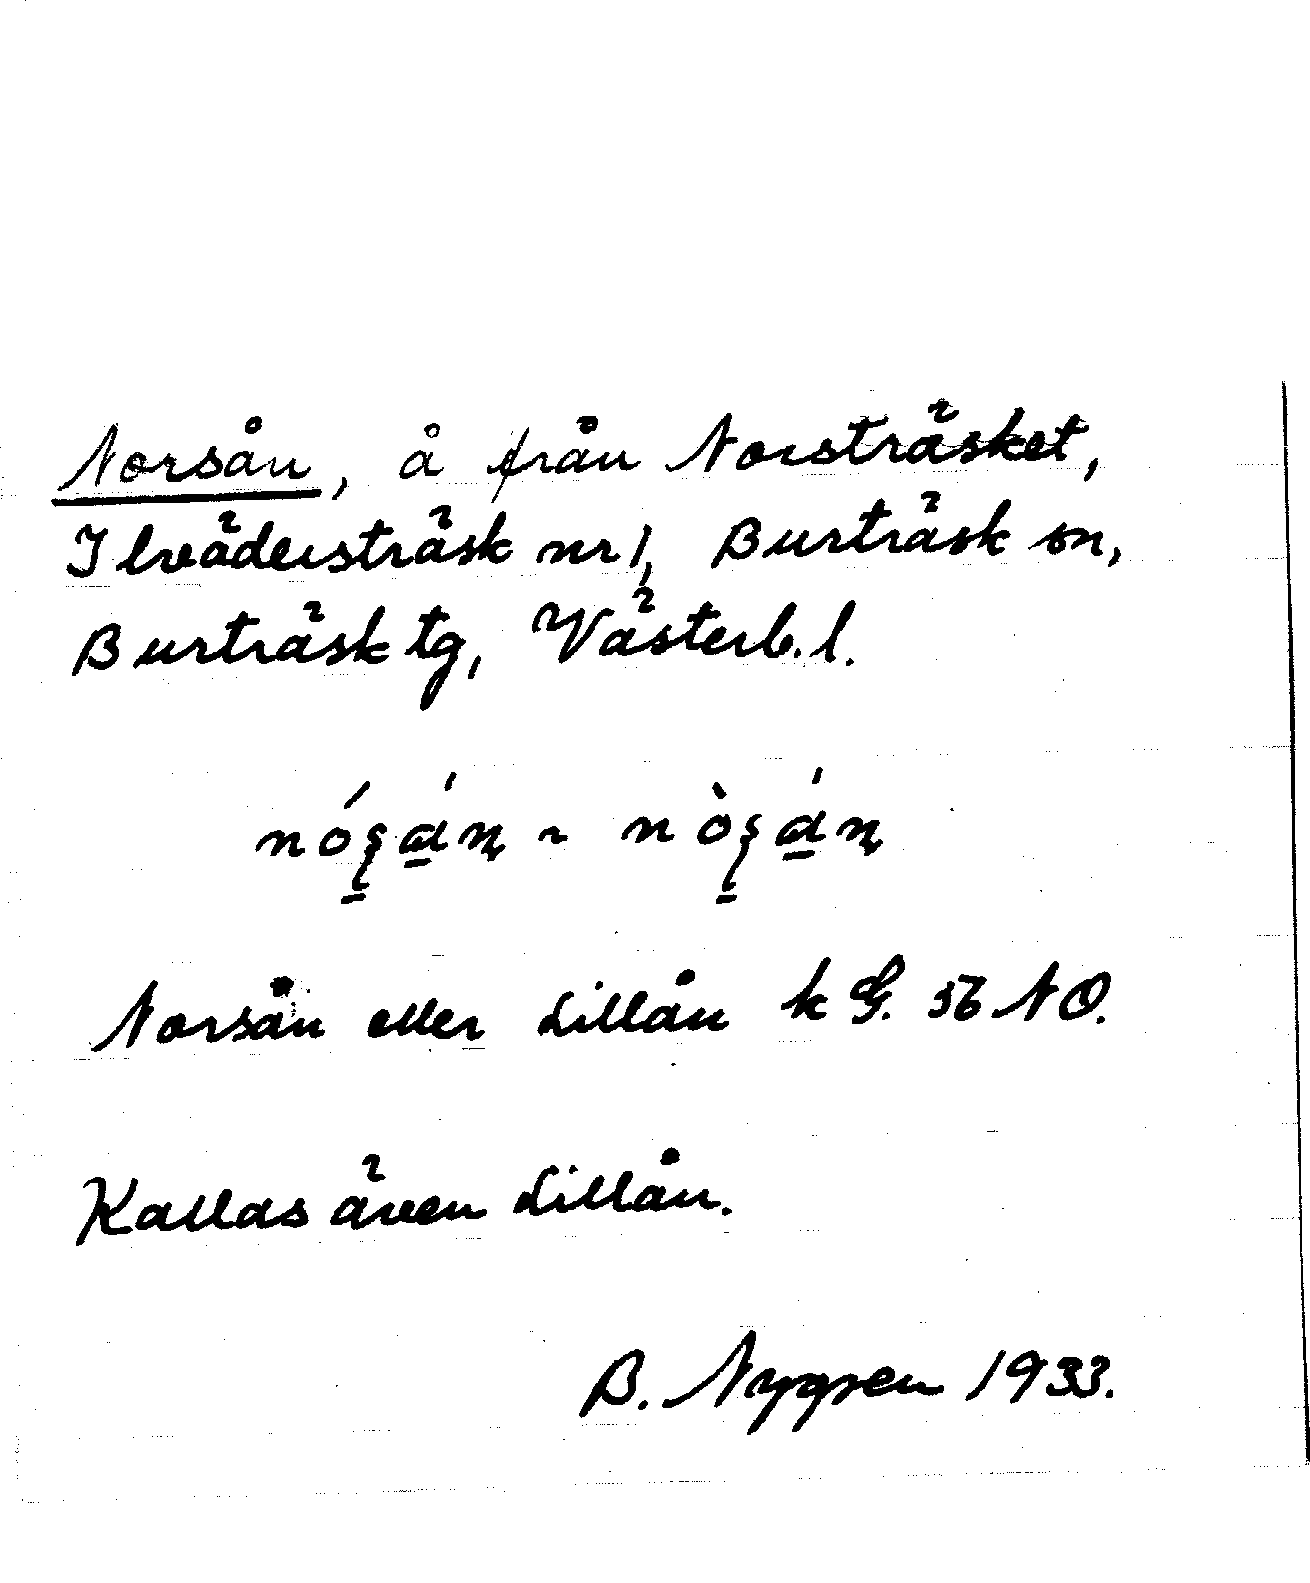 Norsån, å från Norsträsket,
Ilvädersträsk nr 1, Burträsk sn,
Burträsk tg, Västerb. l.
Norsån eller Lillån k G. 56 NO.
Kallas även Lillån.
B. Nygren 1933.